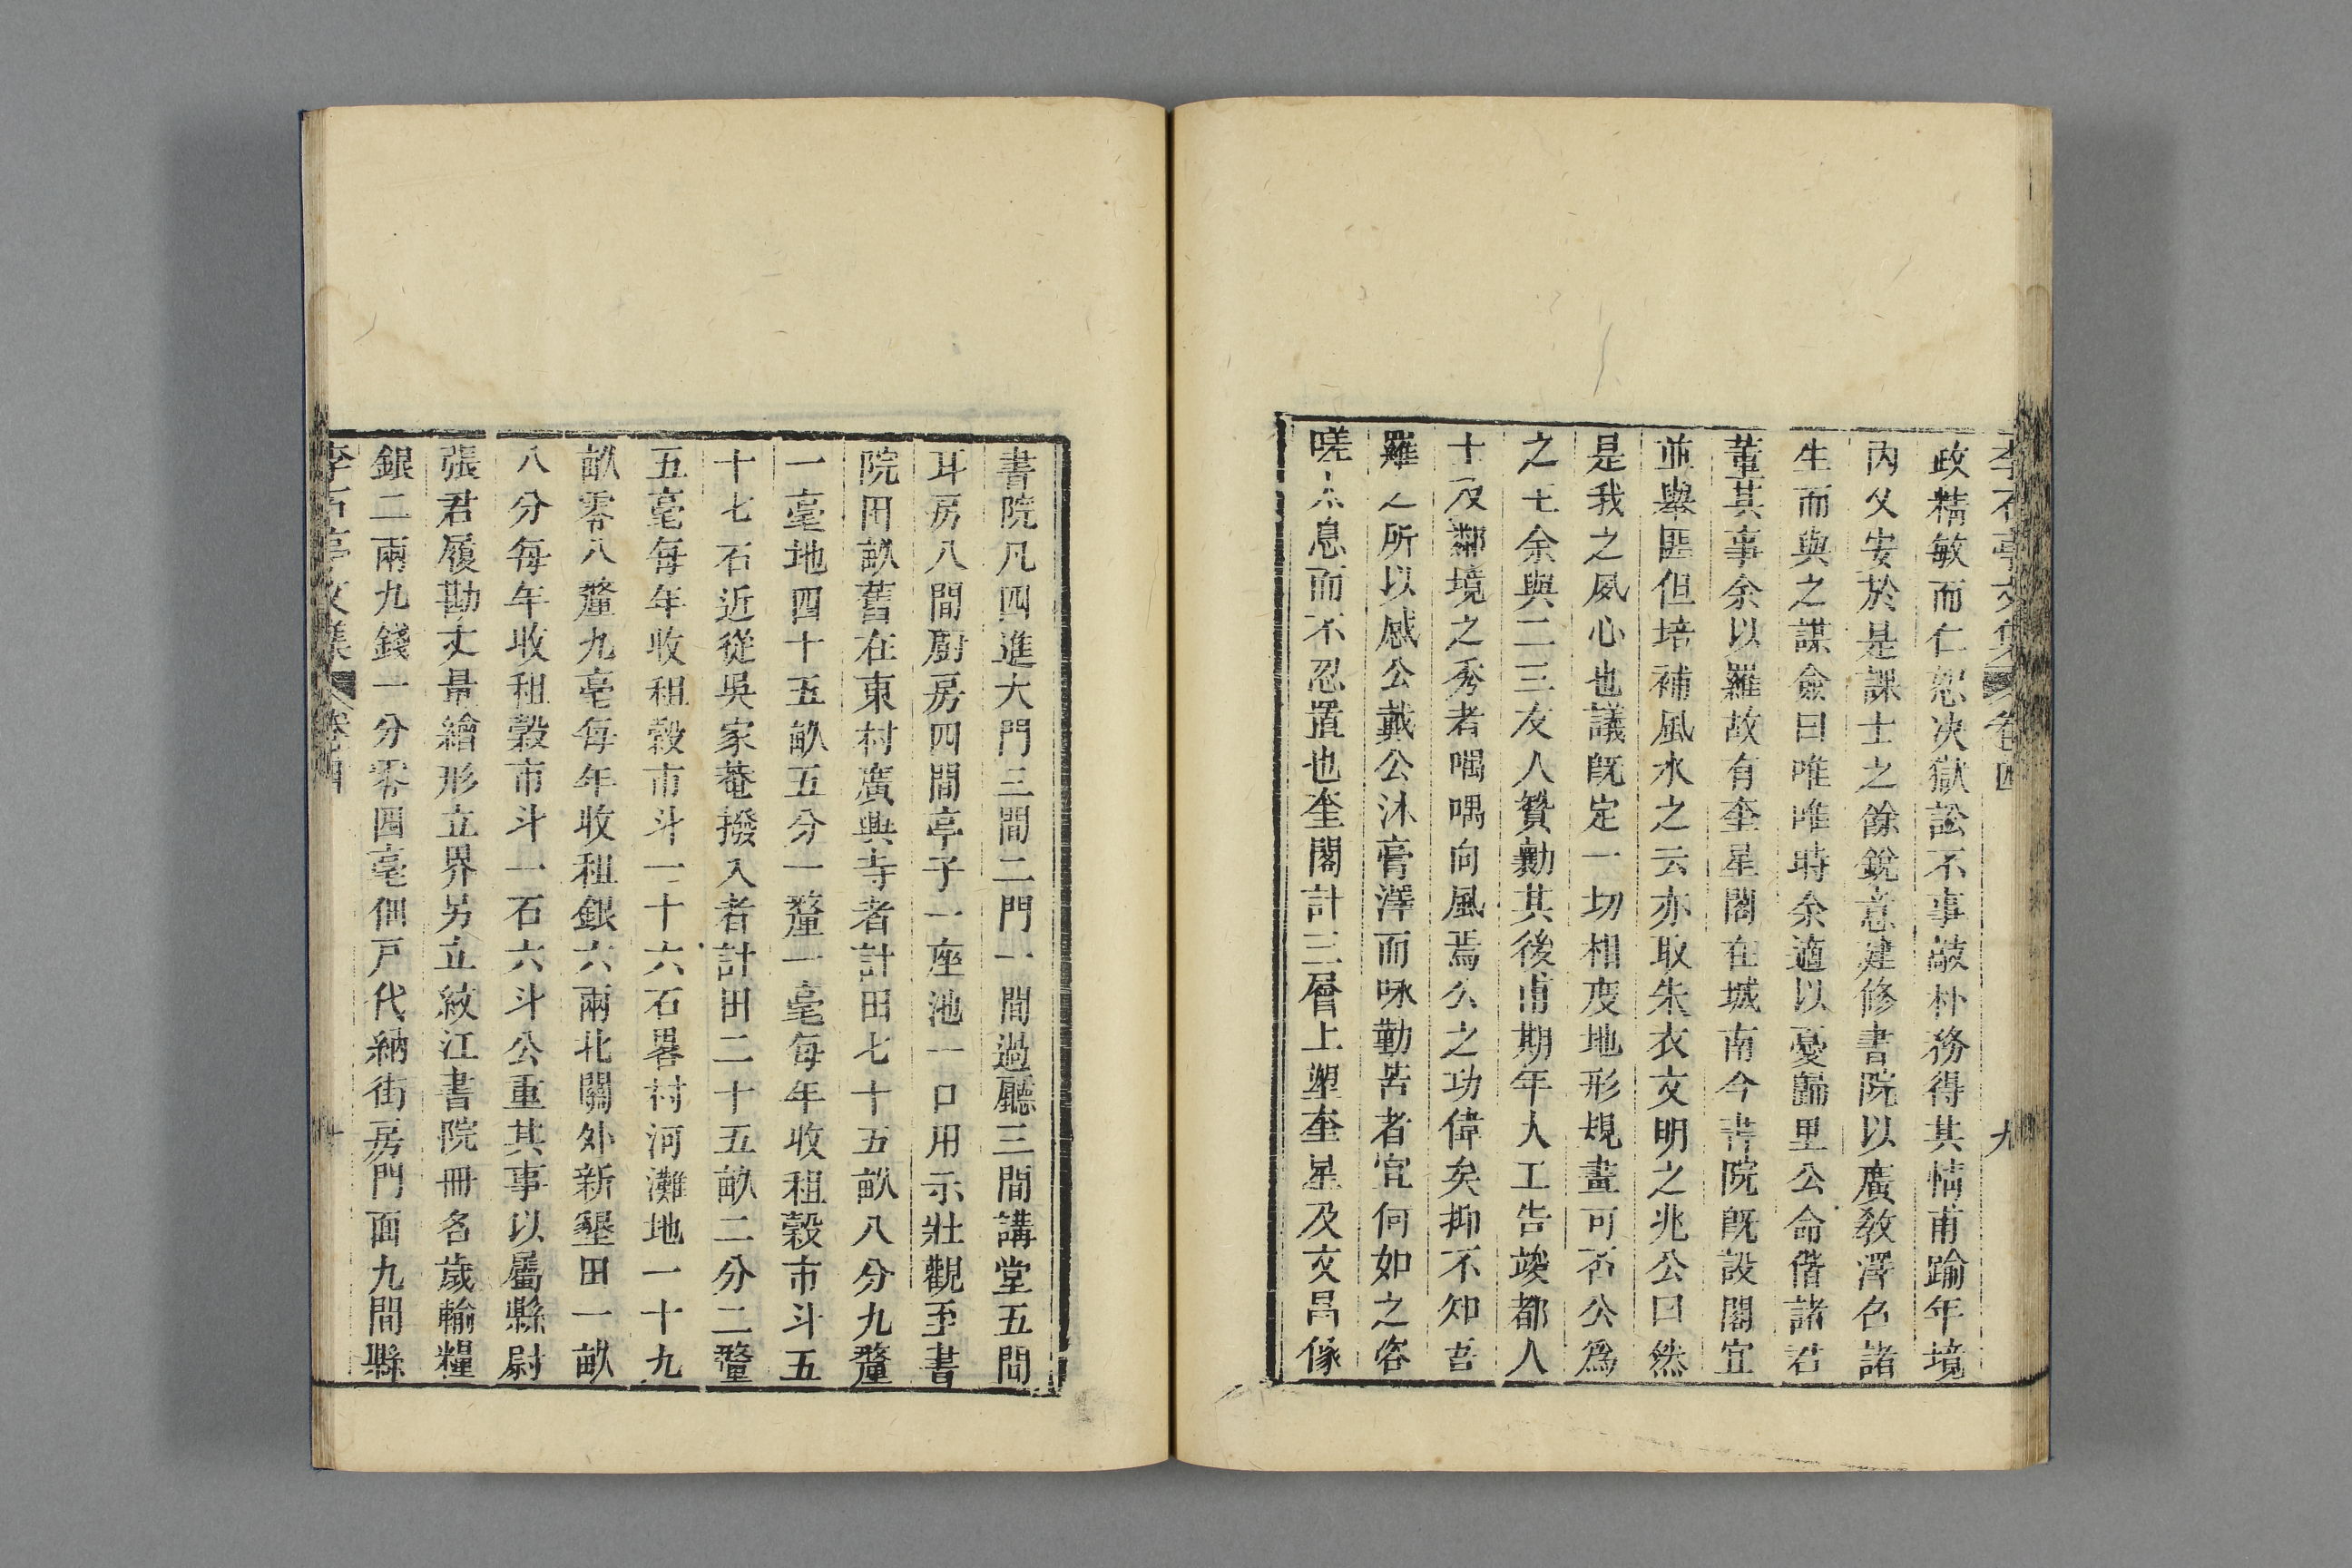 李石亭文集 卷四 九
政精敏而仁恕決獄訟不事敲朴務得其情甫踰年境
內乂安於是課士之餘銳意建修書院以廣敎澤名諸
生而與之謀僉曰唯唯時余適以憂歸里公命偕諸君
董其事余以羅故有奎星閣在城南今書院旣設閣宜
並舉匪但培補風水之云亦取朱衣文明之兆公曰然
是我之夙心也議旣定一切相度地形規畫可否公爲
之主余與二三友人贊勷其後甫期年人工告竣都人
士及鄰境之秀者喁喁向風焉公之功偉矣抑不知吾
羅之所以感公戴公沐膏澤而咏勤苦者宜何如之容
嗟太息而不忍置也奎閣計三層上塑奎星及文昌像
書院凡四進大門三間二門一間過廳三間講堂五間
耳房八間廚房四間亭子一座池一口用示壯觀至書
院田畝舊在東村廣興寺者計田七十五畝八分九釐
一毫地四十五畝五分一釐一毫每年收租穀市斗五
十七石近從吳家菴撥入者計田二十五畝二分二釐
五毫每年收租穀市斗一十六石畧村河灘地一十九
畝零八釐九毫每年收租銀六兩北關外新墾田一畝
八分每年收租穀市斗一石六斗公重其事以屬縣尉
張君履勘丈量繪形立界另立紋江書院冊名歲輸糧
銀二兩九錢一分零四毫佃戸代納街房門面九間縣
李石亭文集 卷四 十